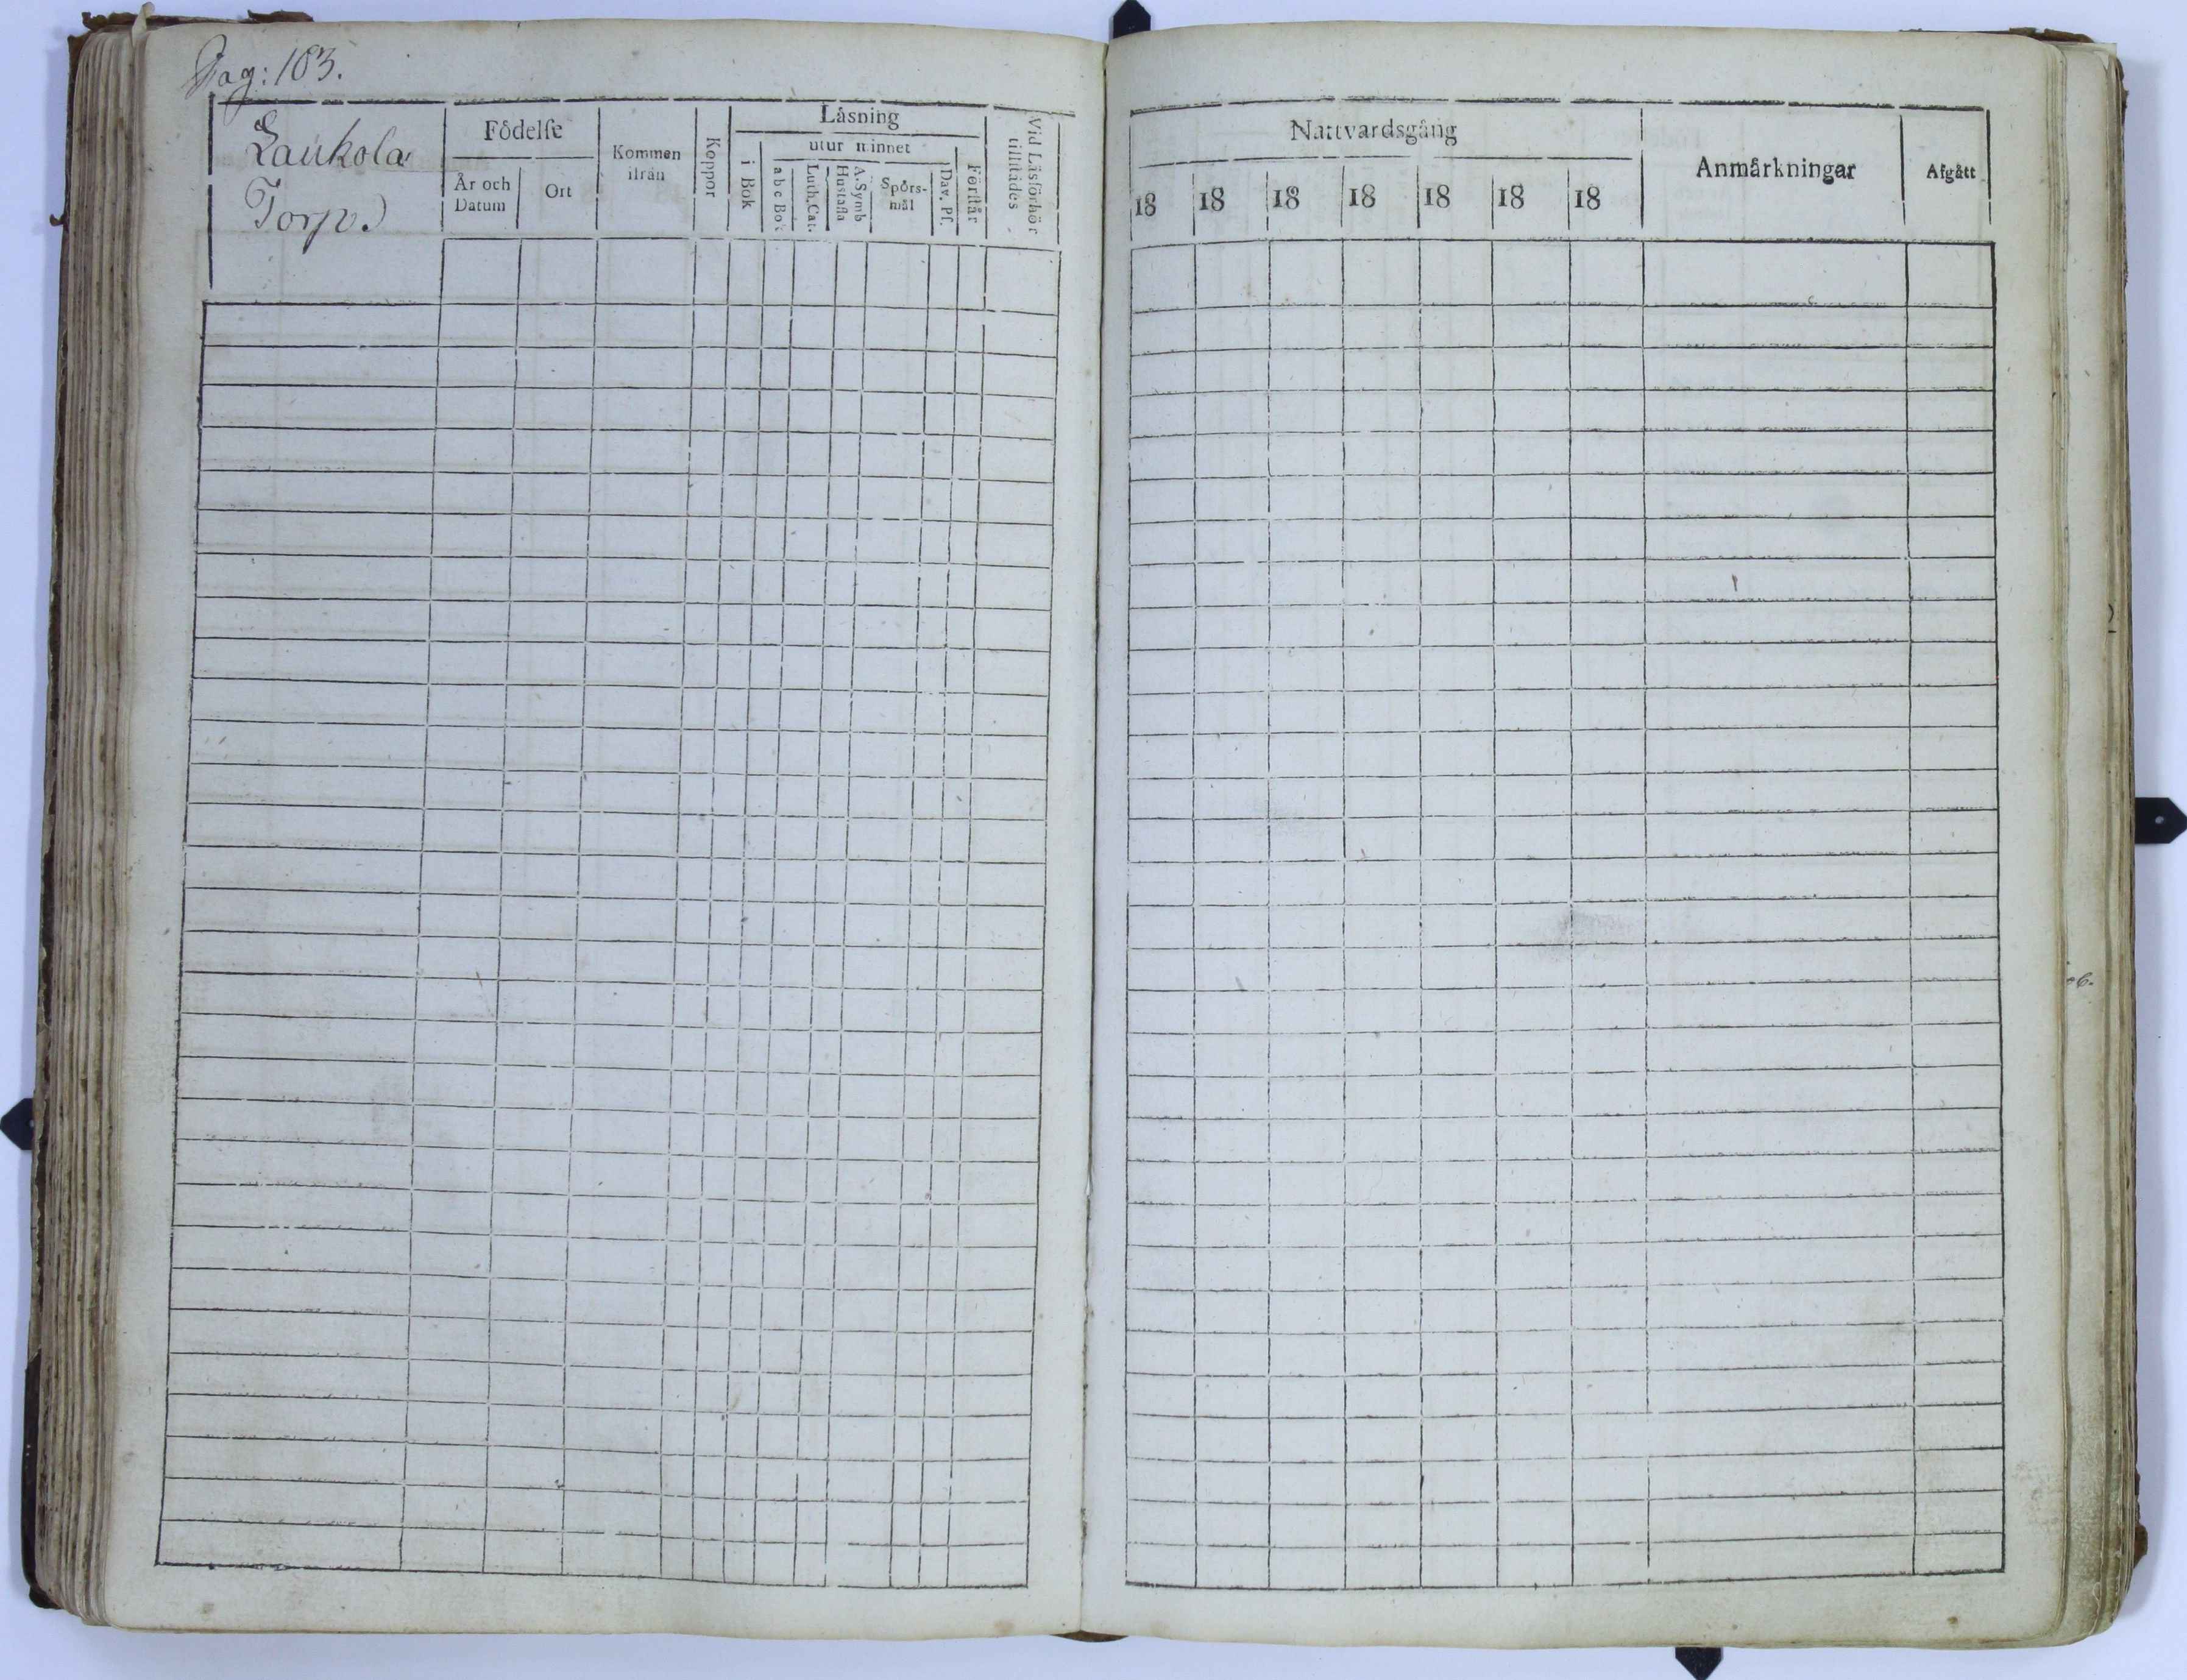 Pag: 103.
Laukola
Torp.
Födelse
År och Datum
Ort
Kommen ifrån
Koppor
Läsning
i Bok
utur minnet
a b c Bok
Luth. Cat.
Hustafla
A. Symb
Spörs-
mål
Dav. Ps.
Förstår
Vid Läsförhör
tillstädes
Nattvardsgång
18 18 18 18 18 18 18
Anmärkningar
Afgått